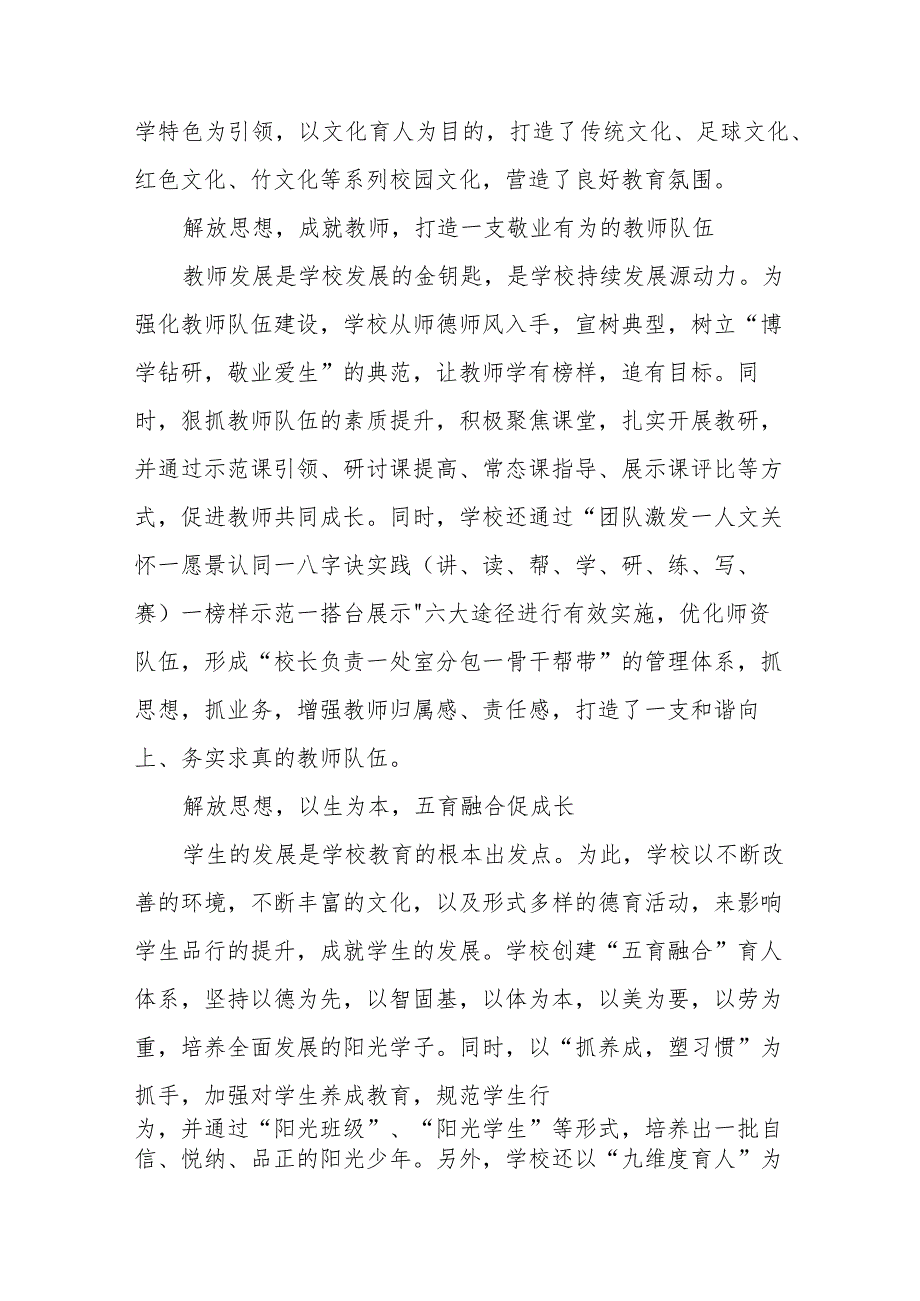 学特色为引领，以文化育人为目的，打造了传统文化、足球文化、
红色文化、竹文化等系列校园文化，营造了良好教育氛围。
解放思想，成就教师，打造一支敬业有为的教师队伍
教师发展是学校发展的金钥匙，是学校持续发展源动力。为
强化教师队伍建设，学校从师德师风入手，宣树典型，树立“博
学钻研，敬业爱生”的典范，让教师学有榜样，追有目标。同
时，狠抓教师队伍的素质提升，积极聚焦课堂，扎实开展教研，
并通过示范课引领、研讨课提高、常态课指导、展示课评比等方
式，促进教师共同成长。同时，学校还通过“团队激发一人文关
怀一愿景认同一八字诀实践（讲、读、帮、学、研、练、写、
赛）一榜样示范一搭台展示"六大途径进行有效实施，优化师资
队伍，形成“校长负责一处室分包一骨干帮带”的管理体系，抓
思想，抓业务，增强教师归属感、责任感，打造了一支和谐向
上、务实求真的教师队伍。
解放思想，以生为本，五育融合促成长
学生的发展是学校教育的根本出发点。为此，学校以不断改
善的环境，不断丰富的文化，以及形式多样的德育活动，来影响
学生品行的提升，成就学生的发展。学校创建“五育融合”育人
体系，坚持以德为先，以智固基，以体为本，以美为要，以劳为
重，培养全面发展的阳光学子。同时，以“抓养成，塑习惯”为
抓手，加强对学生养成教育，规范学生行
为，并通过“阳光班级”、“阳光学生”等形式，培养出一批自
信、悦纳、品正的阳光少年。另外，学校还以“九维度育人”为